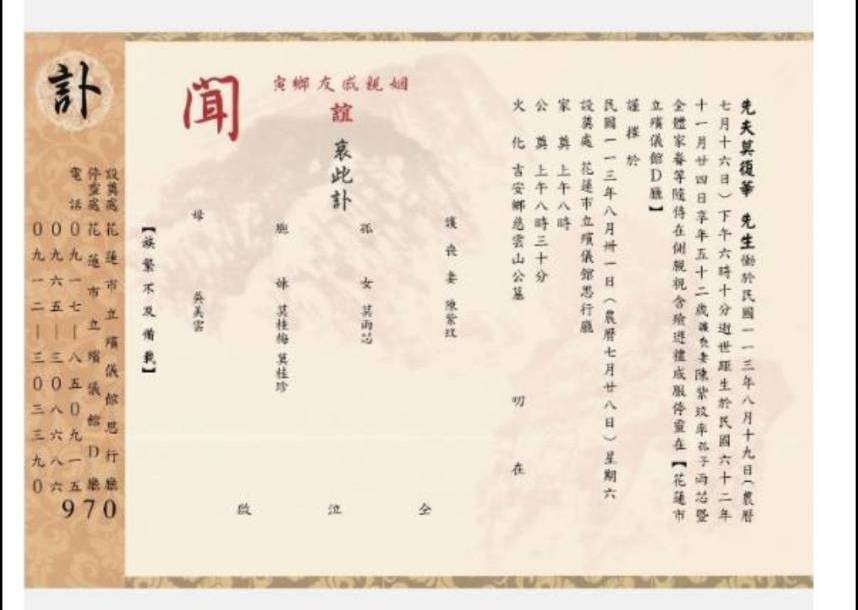 先夫莫復華 先生慟於民國一一三年八月十九日(農曆
七月十六日)下午六時十分逝世距生於民國六十二年
十一月廿四日享年五十二歲護喪妻陳紫玟率孤子雨芯暨
全體家眷等隨侍在側親視含殮遵禮成服停靈在【花蓮市
立殯儀館D廳】
謹擇於
民國一一三年八月卅一日(農曆七月廿八日)星期六
設奠處 花蓮市立殯儀館思行廳
家奠 上午八時
公奠 上午八時三十分
火化 吉安鄉慈雲山公墓
叨在
姻親戚友鄉寅
誼
哀此訃
聞
護喪妻 陳紫玟
孤女 莫雨芯
胞妹 莫桂梅 莫桂珍
母 吳美雲
仝
泣
啟
【族繁不及備載】
訃
設奠處 花蓮市立殯儀館思行廳
停靈處 花蓮市立殯儀館D廳
電話 0九一七—八五0九一五
0九六五—三0八六八六
0九一二—三0三三九0
970